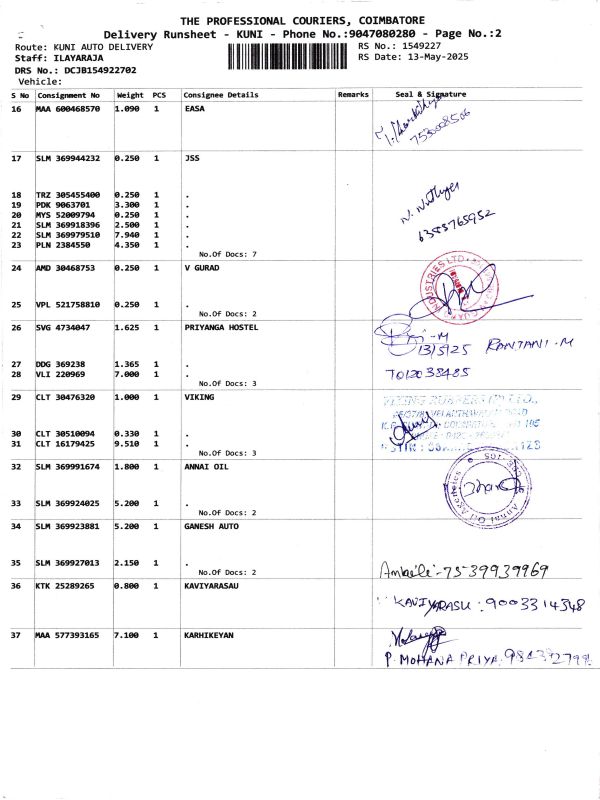 THE PROFESSIONAL COURIERS, COIMBATORE
Delivery Runsheet - KUNI - Phone No.:9047080280 - Page No.:2
Route: KUNI AUTO DELIVERY
RS No.: 1549227
Staff: ILAYARAJA
RS Date: 13-May-2025
DRS No.: DCJB154922702
Vehicle:
S No Consignment No Weight PCS Consignee Details Remarks Seal & Signature
16 MAA 600468570 1.090 1 EASA
7530008506
17 SLM 369944232 0.250 1 JSS
18 TRZ 305455400 0.250 1 .
19 PDK 9063701 3.300 1 .
20 MYS 52009794 0.250 1 .
21 SLM 369918396 2.500 1 .
22 SLM 369979510 7.940 1 .
23 PLN 2384550 4.350 1 .
6383765952
No.Of Docs: 7
24 AMD 30468753 0.250 1 V GURAD
25 VPL 521758810 0.250 1 .
No.Of Docs: 2
26 SVG 4734047 1.625 1 PRIYANGA HOSTEL
13/5/25 RANJANI-M
27 DDG 369238 1.365 1 .
28 VLI 220969 7.000 1 .
No.Of Docs: 3
29 CLT 30476320 1.000 1 VIKING
30 CLT 30510094 0.330 1 .
31 CLT 16179425 9.510 1 .
No.Of Docs: 3
32 SLM 369991674 1.800 1 ANNAI OIL
Annai Oil Agencies
33 SLM 369924025 5.200 1 .
No.Of Docs: 2
34 SLM 369923881 5.200 1 GANESH AUTO
35 SLM 369927013 2.150 1 .
No.Of Docs: 2
7539939969
36 KTK 25289265 0.800 1 KAVIYARASAU
KAVIYARASU : 9003314348
37 MAA 577393165 7.100 1 KARHIKEYAN
P. MOHANA PRIYA